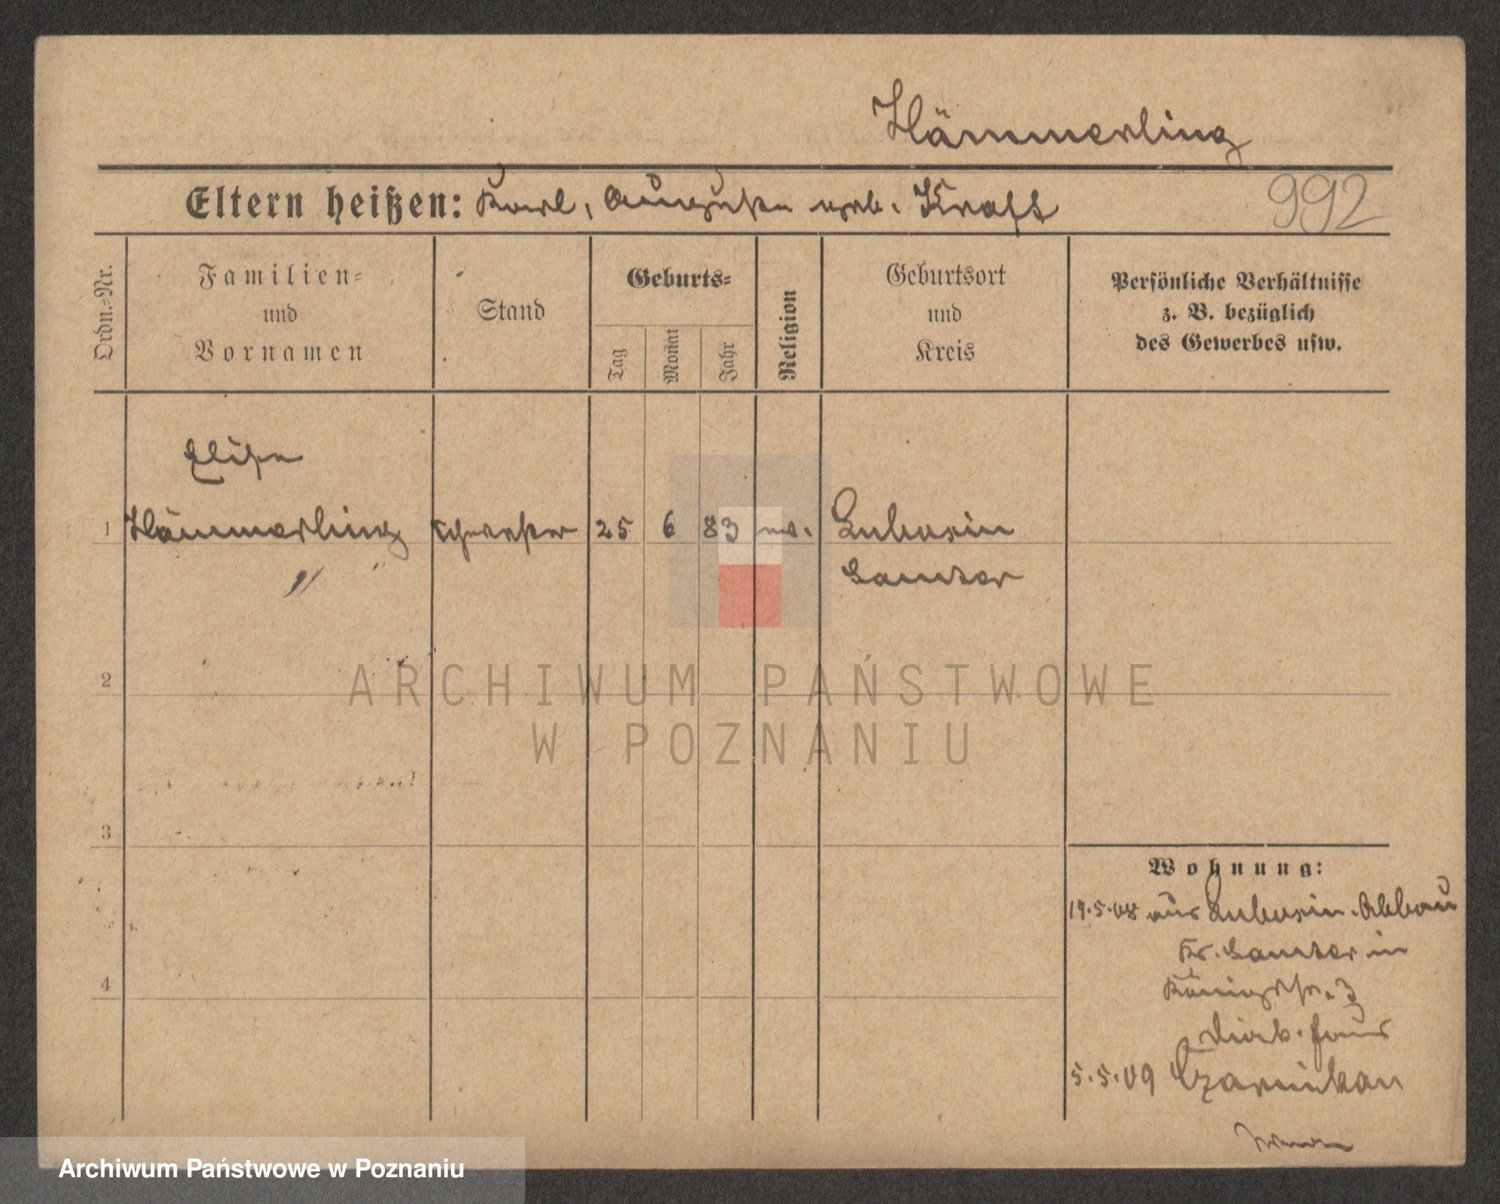 Hämmerling
Eltern heißen: Karl, Auguste geb. Kraft
992
Ordn.-Nr.
Familien- und Vornamen
Stand
Geburts-
Tag
Monat
Jahr
Religion
Geburtsort und Kreis
Persönliche Verhältnisse
z. B. bezüglich
des Gewerbes usw.
Elise
1 Hämmerling Schwester 25 6 83 ev. Lubosin
Samter
2
ARCHIWUM PAŃSTWOWE
W POZNANIU
3
Wohnung:
19.5.08 aus Lubosin-Abbau
Kr. Samter in
4
Königstr. 3
Diak. Haus
5.5.09 Czarnikau
Archiwum Państwowe w Poznaniu